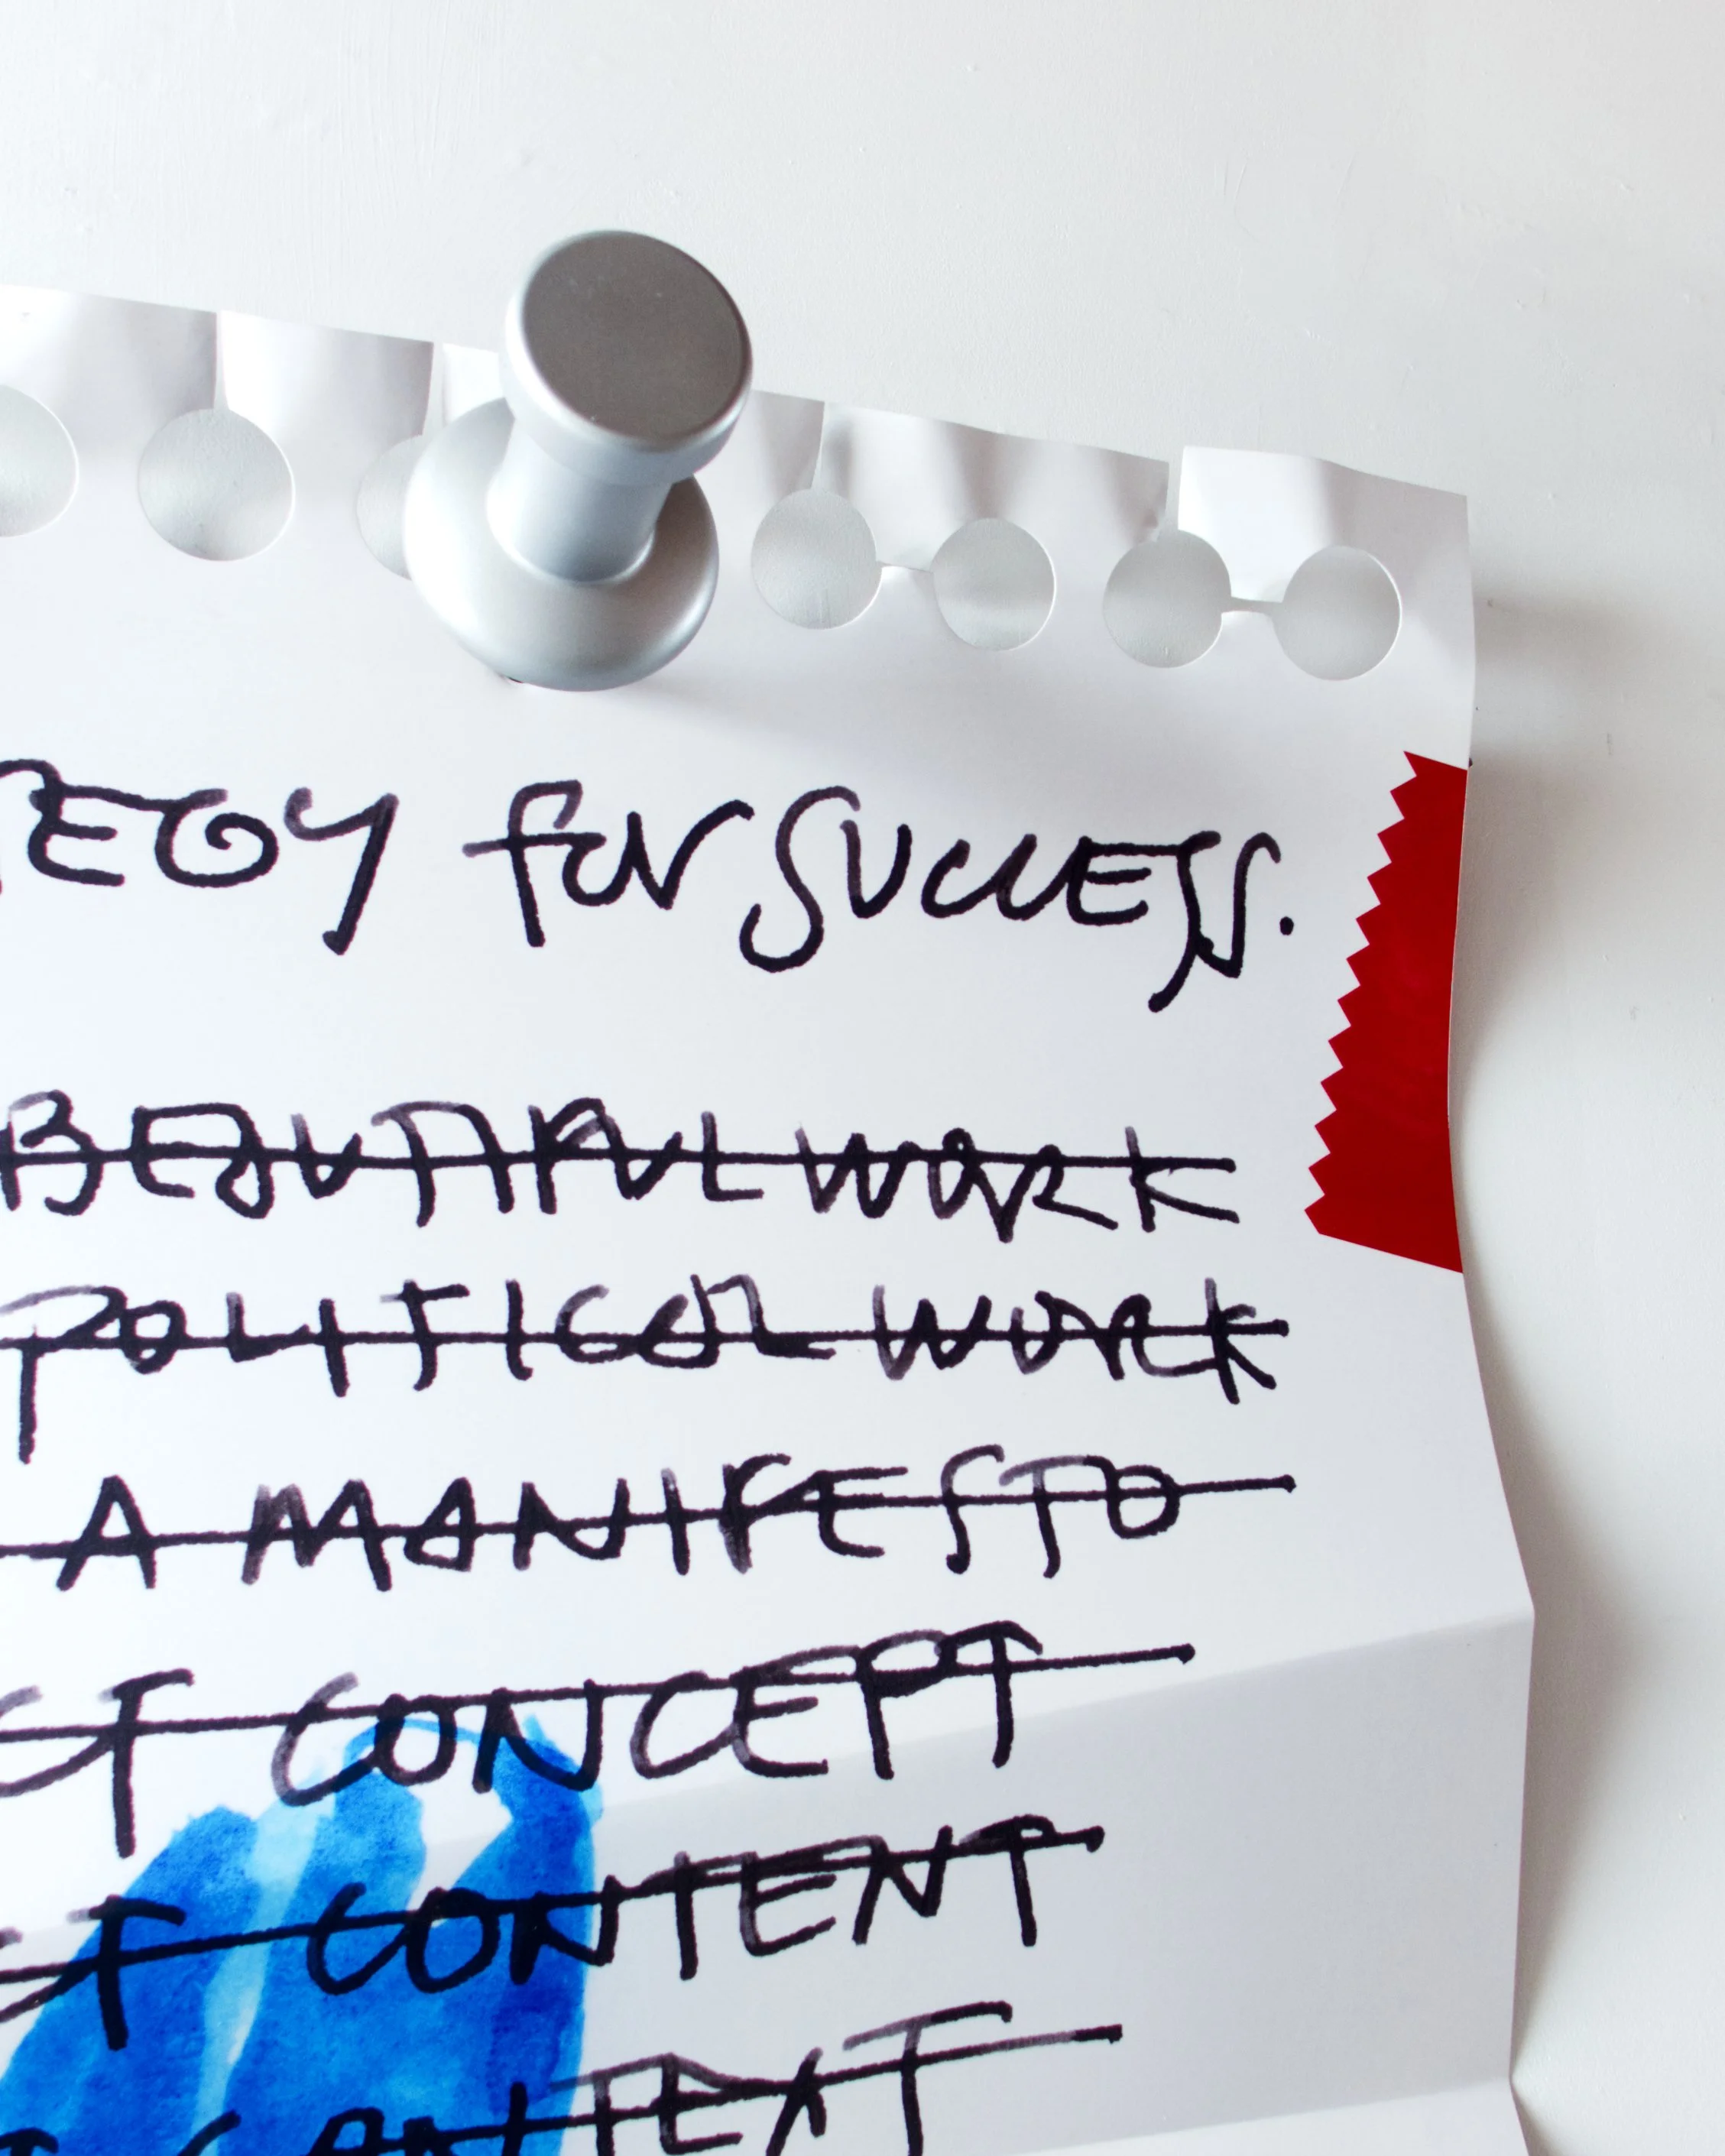 TEGY for SUCCESS.
BEAUTIFUL WORK
POLITICAL WORK
A MANIFESTO
CT CONCEPT
CT CONTENT
T CONTEXT